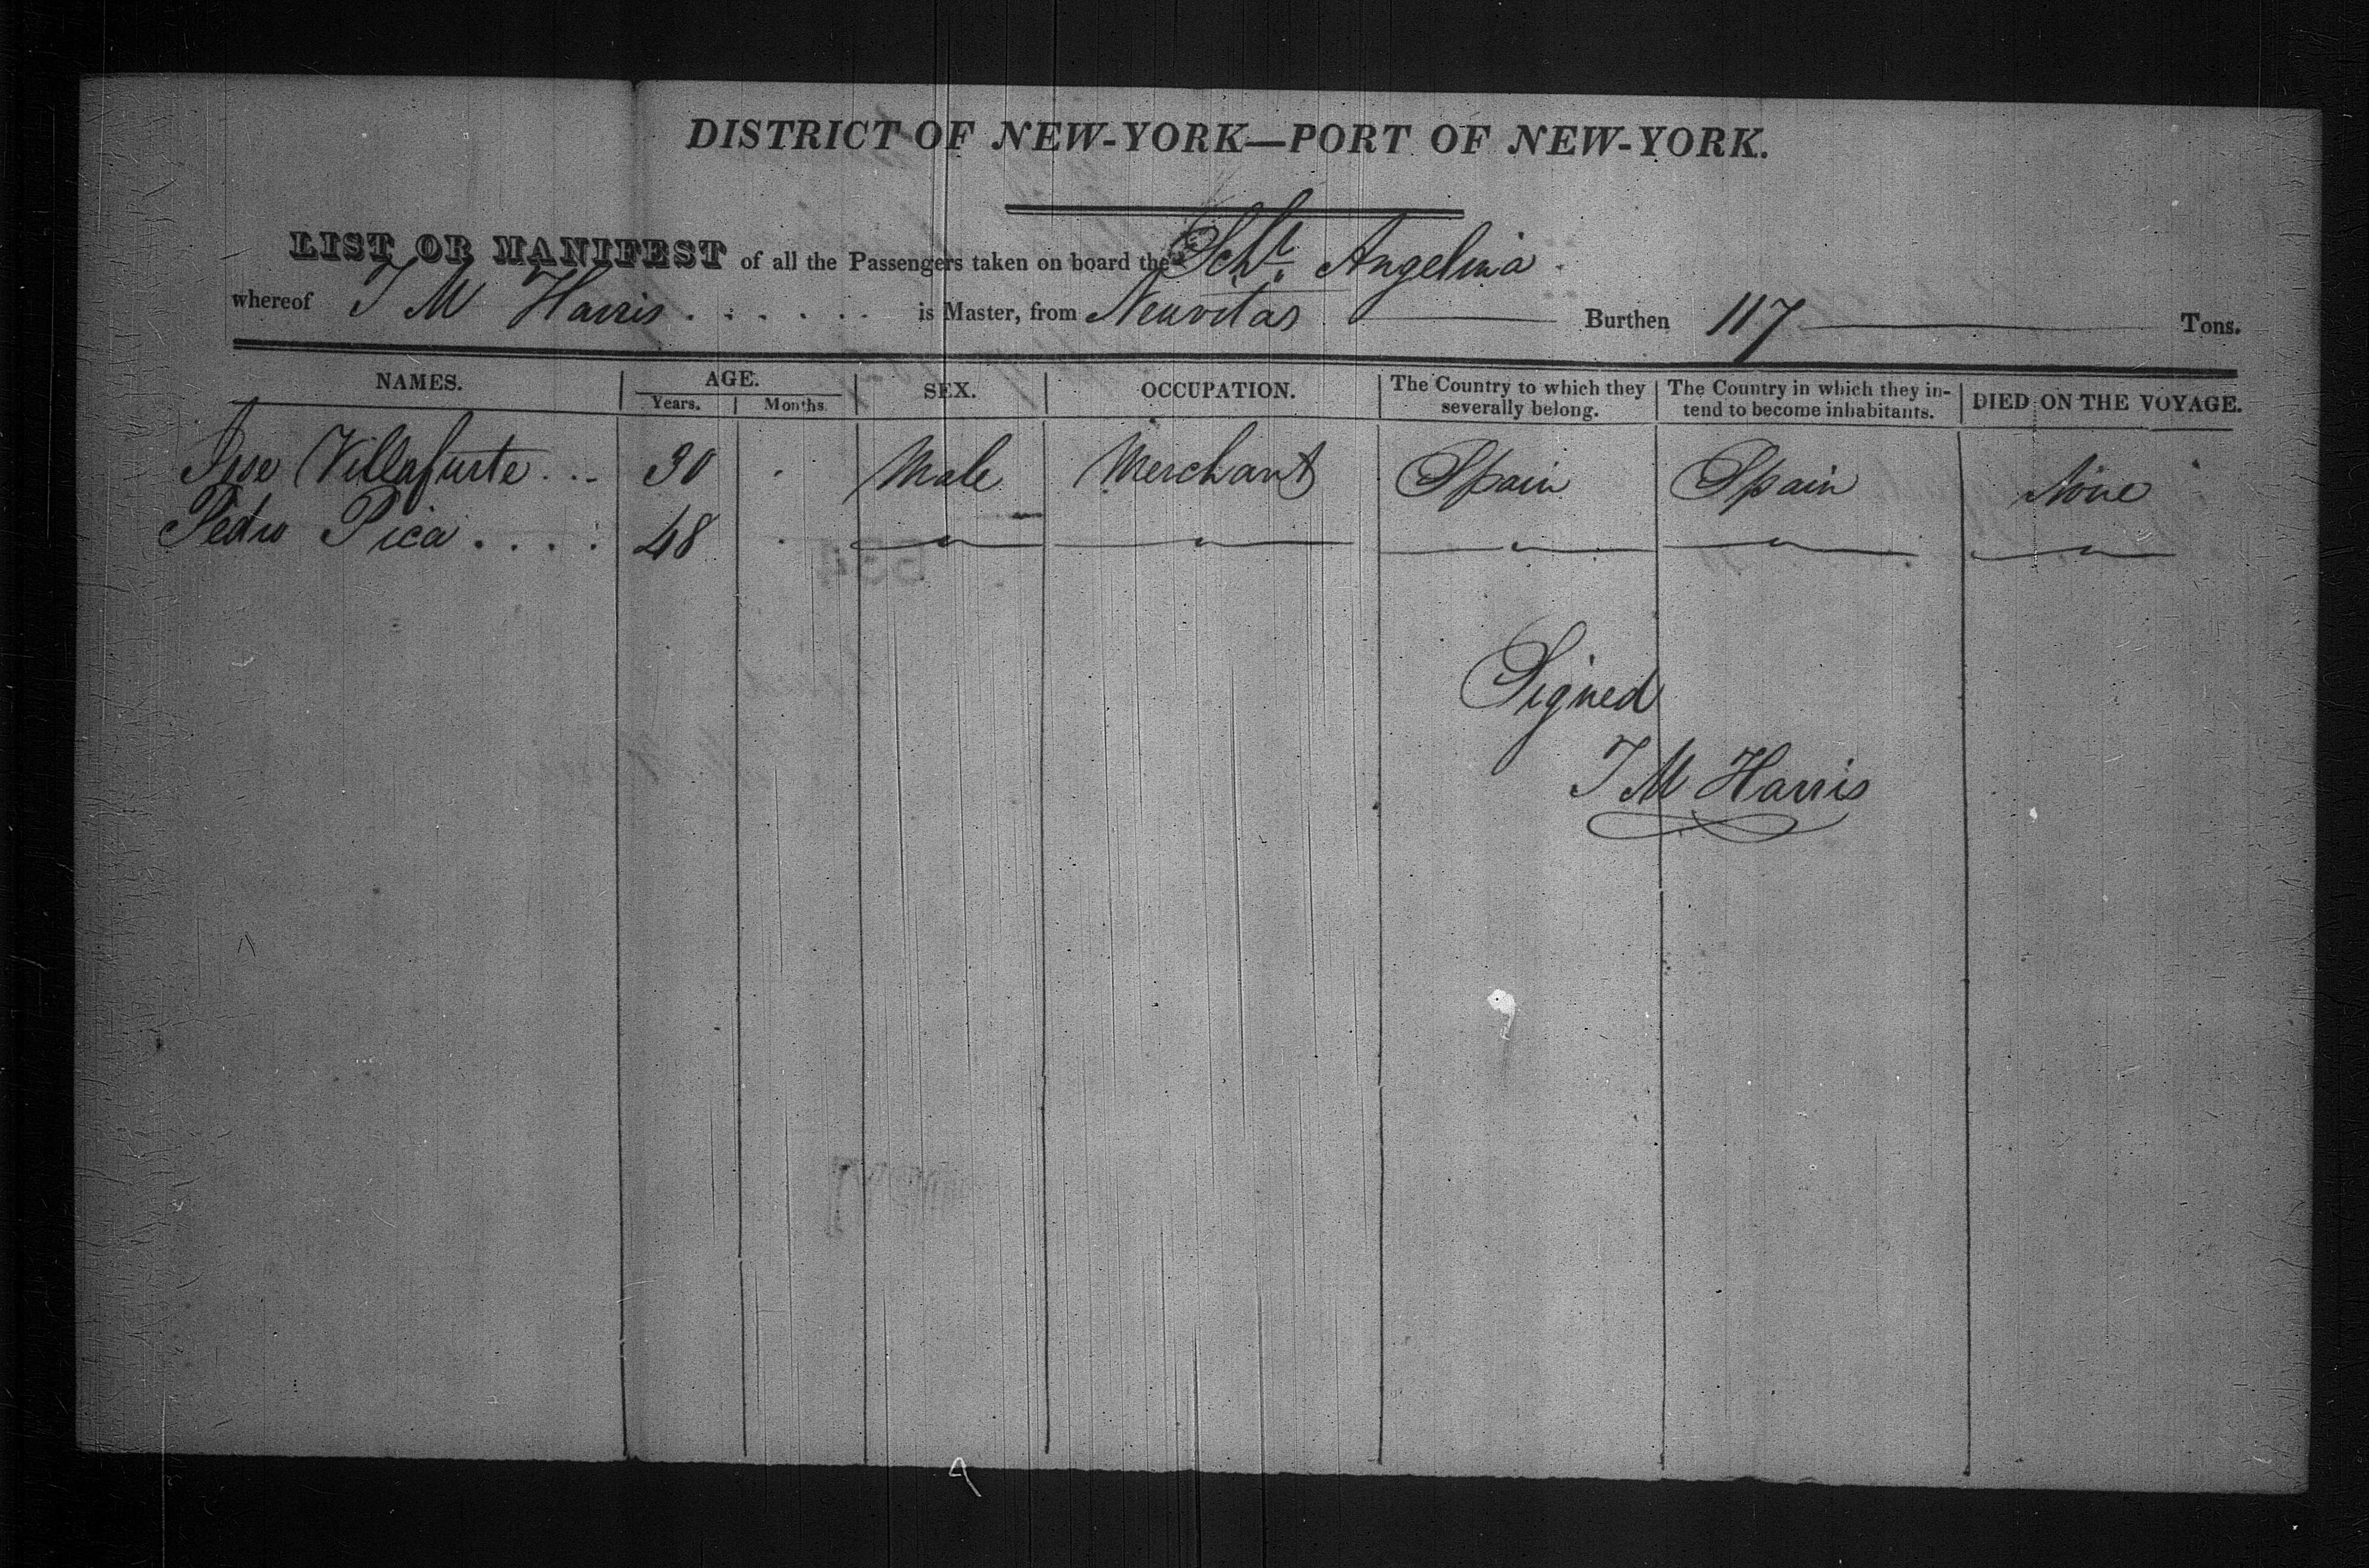 DISTRICT OF NEW-YORK—PORT OF NEW-YORK.
LIST OR MANIFEST of all the Passengers taken on board the Schr. Angelina
whereof J M Harris . . . . . . is Master, from Neuvitas Burthen 117 Tons.
NAMES. AGE. Years. Months. SEX. OCCUPATION. The Country to which they severally belong. The Country in which they intend to become inhabitants. DIED ON THE VOYAGE.
Jose Villafurte . . . 30 Male Merchant Spain Spain None
Pedro Pica . . . . 48 " " " " "
Signed
J M Harris